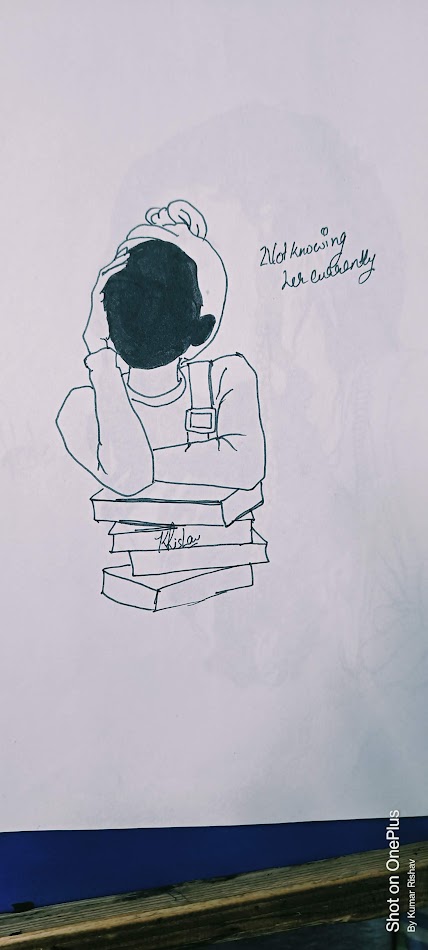 Not knowing
her currently
KRishav
Shot on OnePlus
By Kumar Rishav